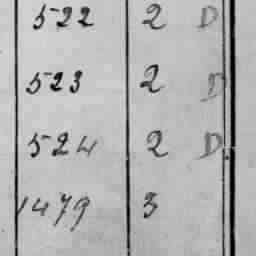 522 2 D
523 2 D
524 2 D
1479 3